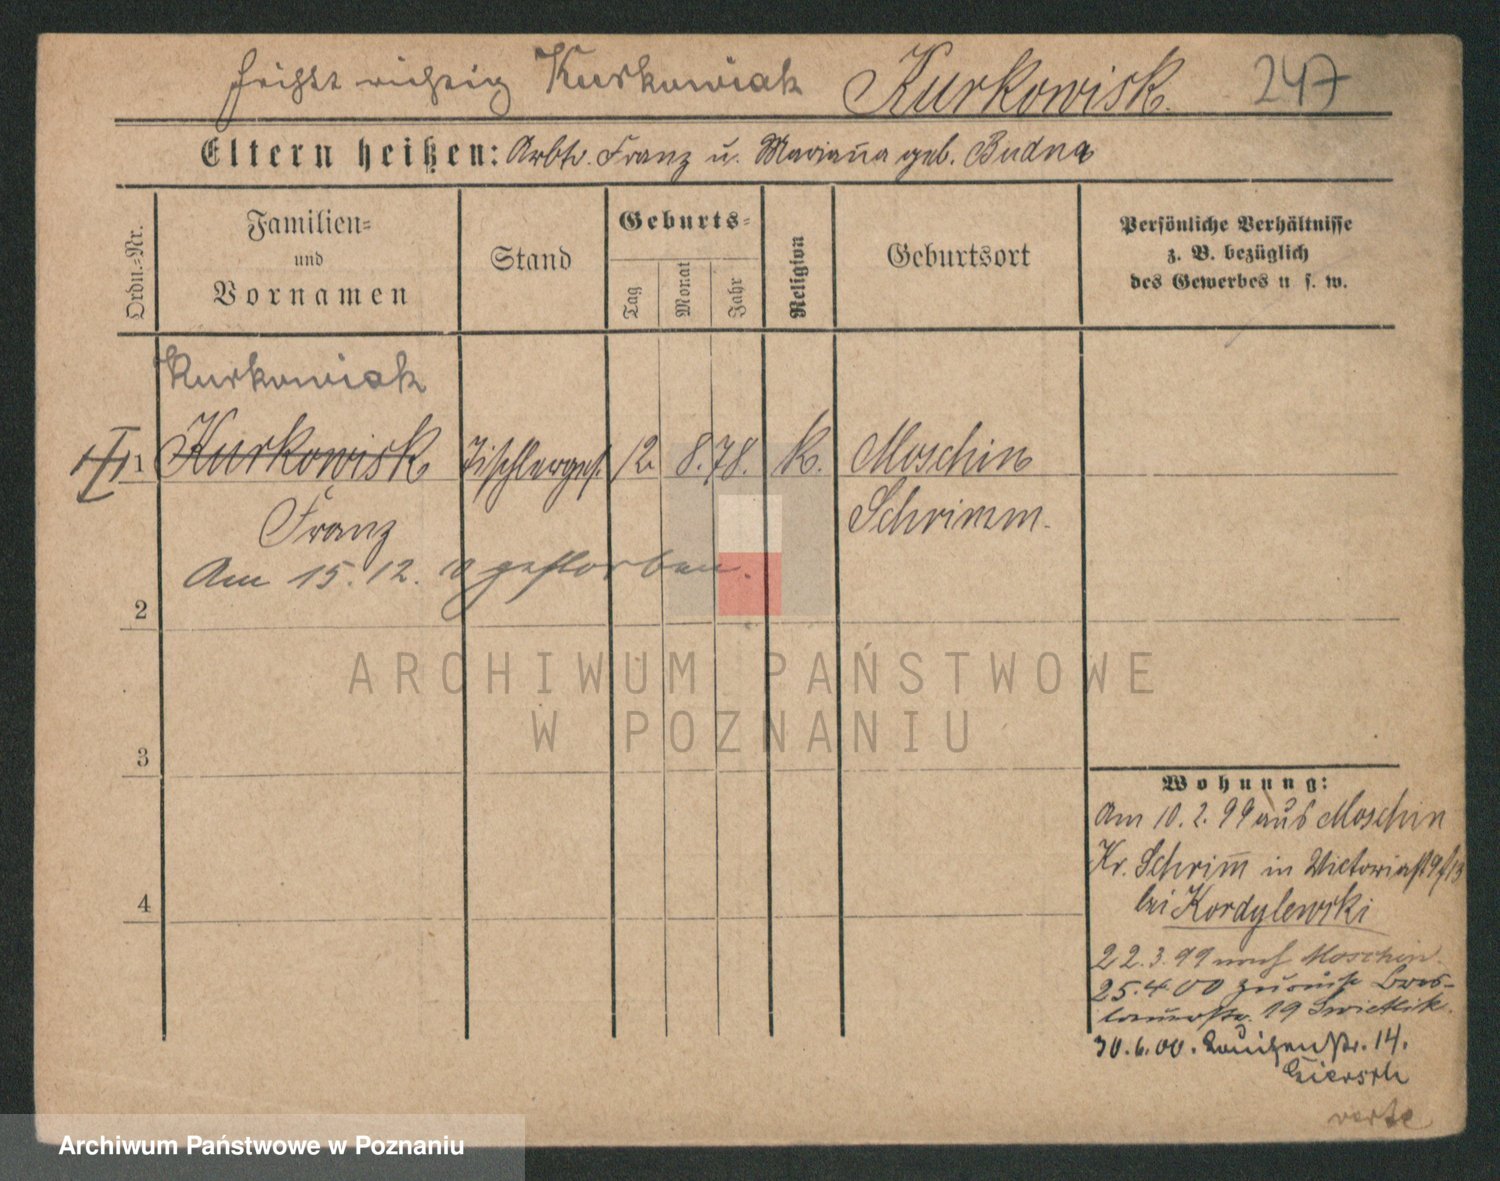 heißt richtig Kurkowiak Kurkowisk. 247
Eltern heißen: Arbtr. Franz u. Mariana geb. Budna
Ordn.-Nr.
Familien-
und
Vornamen
Stand
Geburts-
Tag
Monat
Jahr
Religion
Geburtsort
Persönliche Verhältnisse
z. B. bezüglich
des Gewerbes u s. w.
Kurkowiak
1 Kurkowisk Tischlerges. 12. 8. 78. K. Moschin
Franz Schrimm.
Am 15. 12. gestorben.
2
3
4
ARCHIWUM PAŃSTWOWE
W POZNANIU
Wohnung:
Am 10. 2. 99 aus Moschin
Kr. Schrim̄ in Victoriast
bei Kordylewski
22. 3. 99 nach Moschin.
25. 4. 00 zurück Bres-
lauerstr. 19 Swietlik.
30. 6. 00. Louisenstr. 14.
Giersch
verte
Archiwum Państwowe w Poznaniu